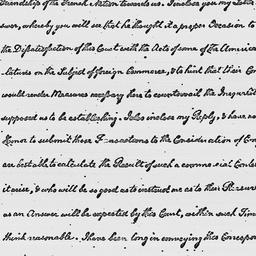 Friendship of the French Nation towards us. I inclose you my Letter
swer, whereby you will see that he thought it a proper Occasion to
the Dissatisfaction of this Court with the Acts of some of the America
latures on the Subject of foreign Commerce, & to hint that their Con
would render Measures necessary here to countervail the Inequalit
supposed as to be establishing. I also inclose my Reply, & have ta
Honor to submit these Transactions to the Consideration of Con
are best able to calculate the Result of such a commercial Conte
it arise, & who will be so good as to instruct me as to their Pleasure
as an Answer will be expected by this Court, within such Time
think reasonable. I have been long in conveying this Correspon